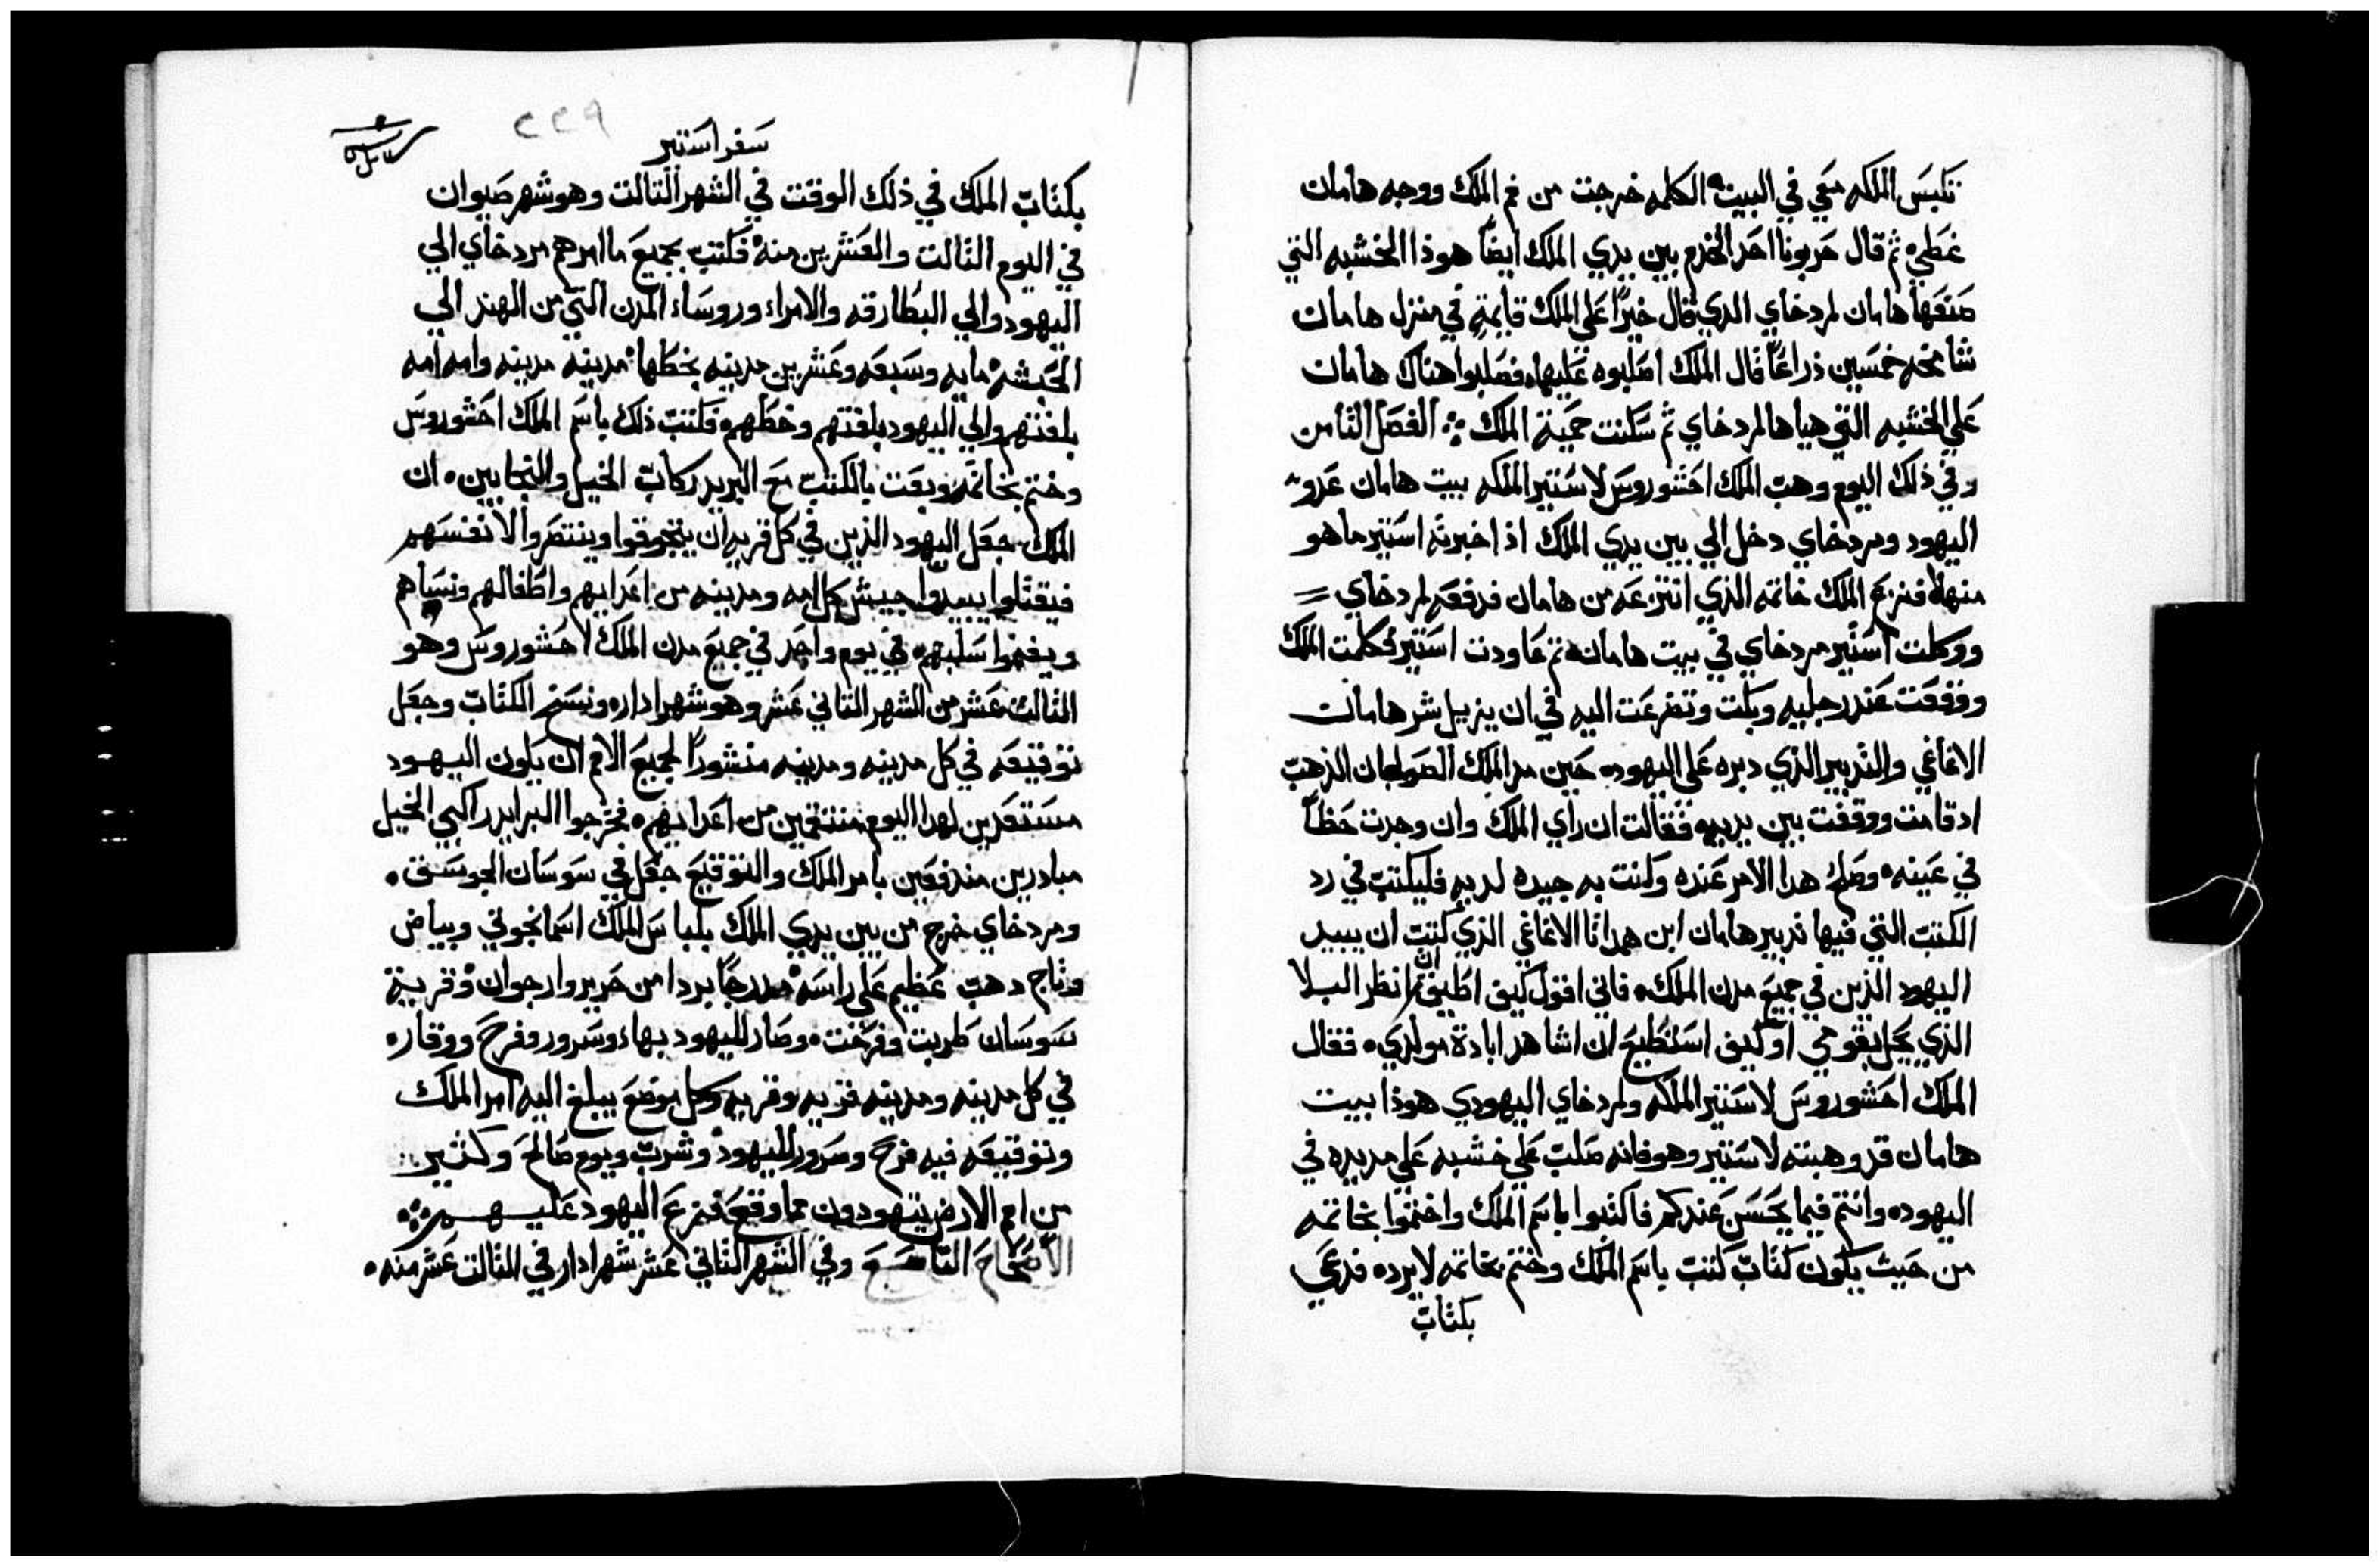 تلبس الملكه معي في البيت الكلمه خرجت من فم الملك ووجه هامان
غطي ثم قال حربونا احد الخدم بين يدي الملك ايضاً هوذا الخشبه التي
صنعها هامان لمردخاي الدي قال خيراً علي الملك قايمة في منزل هامان
شامخه خمسين ذراعاً قال الملك اصلبوه عليها فصلبوا هناك هامان
علي الخشبه التي هياها لمردخاي ثم سكنت حمية الملك الفصل الثامن
وفي ذلك اليوم وهب الملك احشوروس لاستير الملكه بيت هامان عدو
اليهود ومردخاي دخل الي بين يدي الملك اذ اخبرته استير ما هو
منها فنزع الملك خاتمه الذي انتزعه من هامان فدفعه لمردخاي
ووكلت استير مردخاي في بيت هامان ثم عاودت استير فكلمت الملك
ووقعت عند رجليه وبكت وتضرعت اليه في ان يزيل شر هامان
الاغاغي والتدبير الذي دبره علي اليهود حين مد الملك الصولجان الذهب
اد قامت ووقفت بين يديه فقالت ان راي الملك وان وجدت حظاً
في عينه وصلح هدا الامر عنده وكنت به جيده لديه فليكتب في رد
الكتب التي فيها تدبير هامان ابن همداتا الاغاغي الذي كتب ان يبيد
اليهود الذين في جميع مدن الملك فاني اقول كيف اطيق ان انظر البلا
الذي يحل بقومي او كيف استطيع ان اشاهد ابادة مولدي فقال
الملك احشوروس لاستير الملكه ولمردخاي اليهودي هوذا بيت
هامان قد وهبته لاستير وهو فانه صلب علي خشبه علي مد يده في
اليهود وانتم فيما يحسن عندكم فاكتبوا باسم الملك واختموا بخاتمه
من حيث يكون كتاب كتب باسم الملك وختم بخاتمه لا يرد فدعي
بكتاب
٢٢٩
سفر استير
بكتاب الملك في ذلك الوقت في الشهر الثالت وهو شهر صيوان
في اليوم الثالت والعشرين منه فكتب بجميع ما امرهم مردخاي الي
اليهود والي البطارقه والامراء وروساء المدن التي من الهند الي
الحبشه مايه وسبعه وعشرين مدينه بخطها مدينه مدينه وامه امه
بلغتهم والي اليهود بلغتهم وخطهم فكتب ذلك باسم الملك احشوروس
وختم بخاتمه وبعت بالكتب مع البريد ركاب الخيل والنجابين ان
الملك جعل اليهود الذين في كل قريه ان يتجوقوا وينتصروا لانفسهم
فيقتلوا يبيدوا جيش كل امه ومدينه من اعدايهم واطفالهم ونساهم
ويغنموا سلبهم في يوم واحد في جميع مدن الملك احشوروس وهو
الثالت عشر من الشهر الثاني عشر وهو شهر ادار ونسخ الكتاب وجعل
توقيعه في كل مدينه ومدينه منشوراً لجميع الامم ان يكون اليهود
مستعدين لهدا اليوم منتقمين من اعدايهم فخرجوا البرايد راكبي الخيل
مبادرين مندفعين بامر الملك والتوقيع جعل في سوسان الجوسق
ومردخاي خرج من بين يدي الملك بلباس الملك اسمانجوني وبياض
وتاج دهب عظيم علي راسه مدرجاً بردا من حرير وارجوان وقرية
سوسان طربت وفرحت وصار لليهود بهاء وسرور وفرح ووقار
في كل مدينه ومدينه قريه وقريه وكل موضع يبلغ اليه امر الملك
وتوقيعه فيه فرح وسرور لليهود وشرب ويوم صالح وكثير
من امم الارض يتهودون مما وقع فزع اليهود عليهم
الاصحاح التاسع وفي الشهر الثاني عشر شهر ادار في الثالت عشر منه